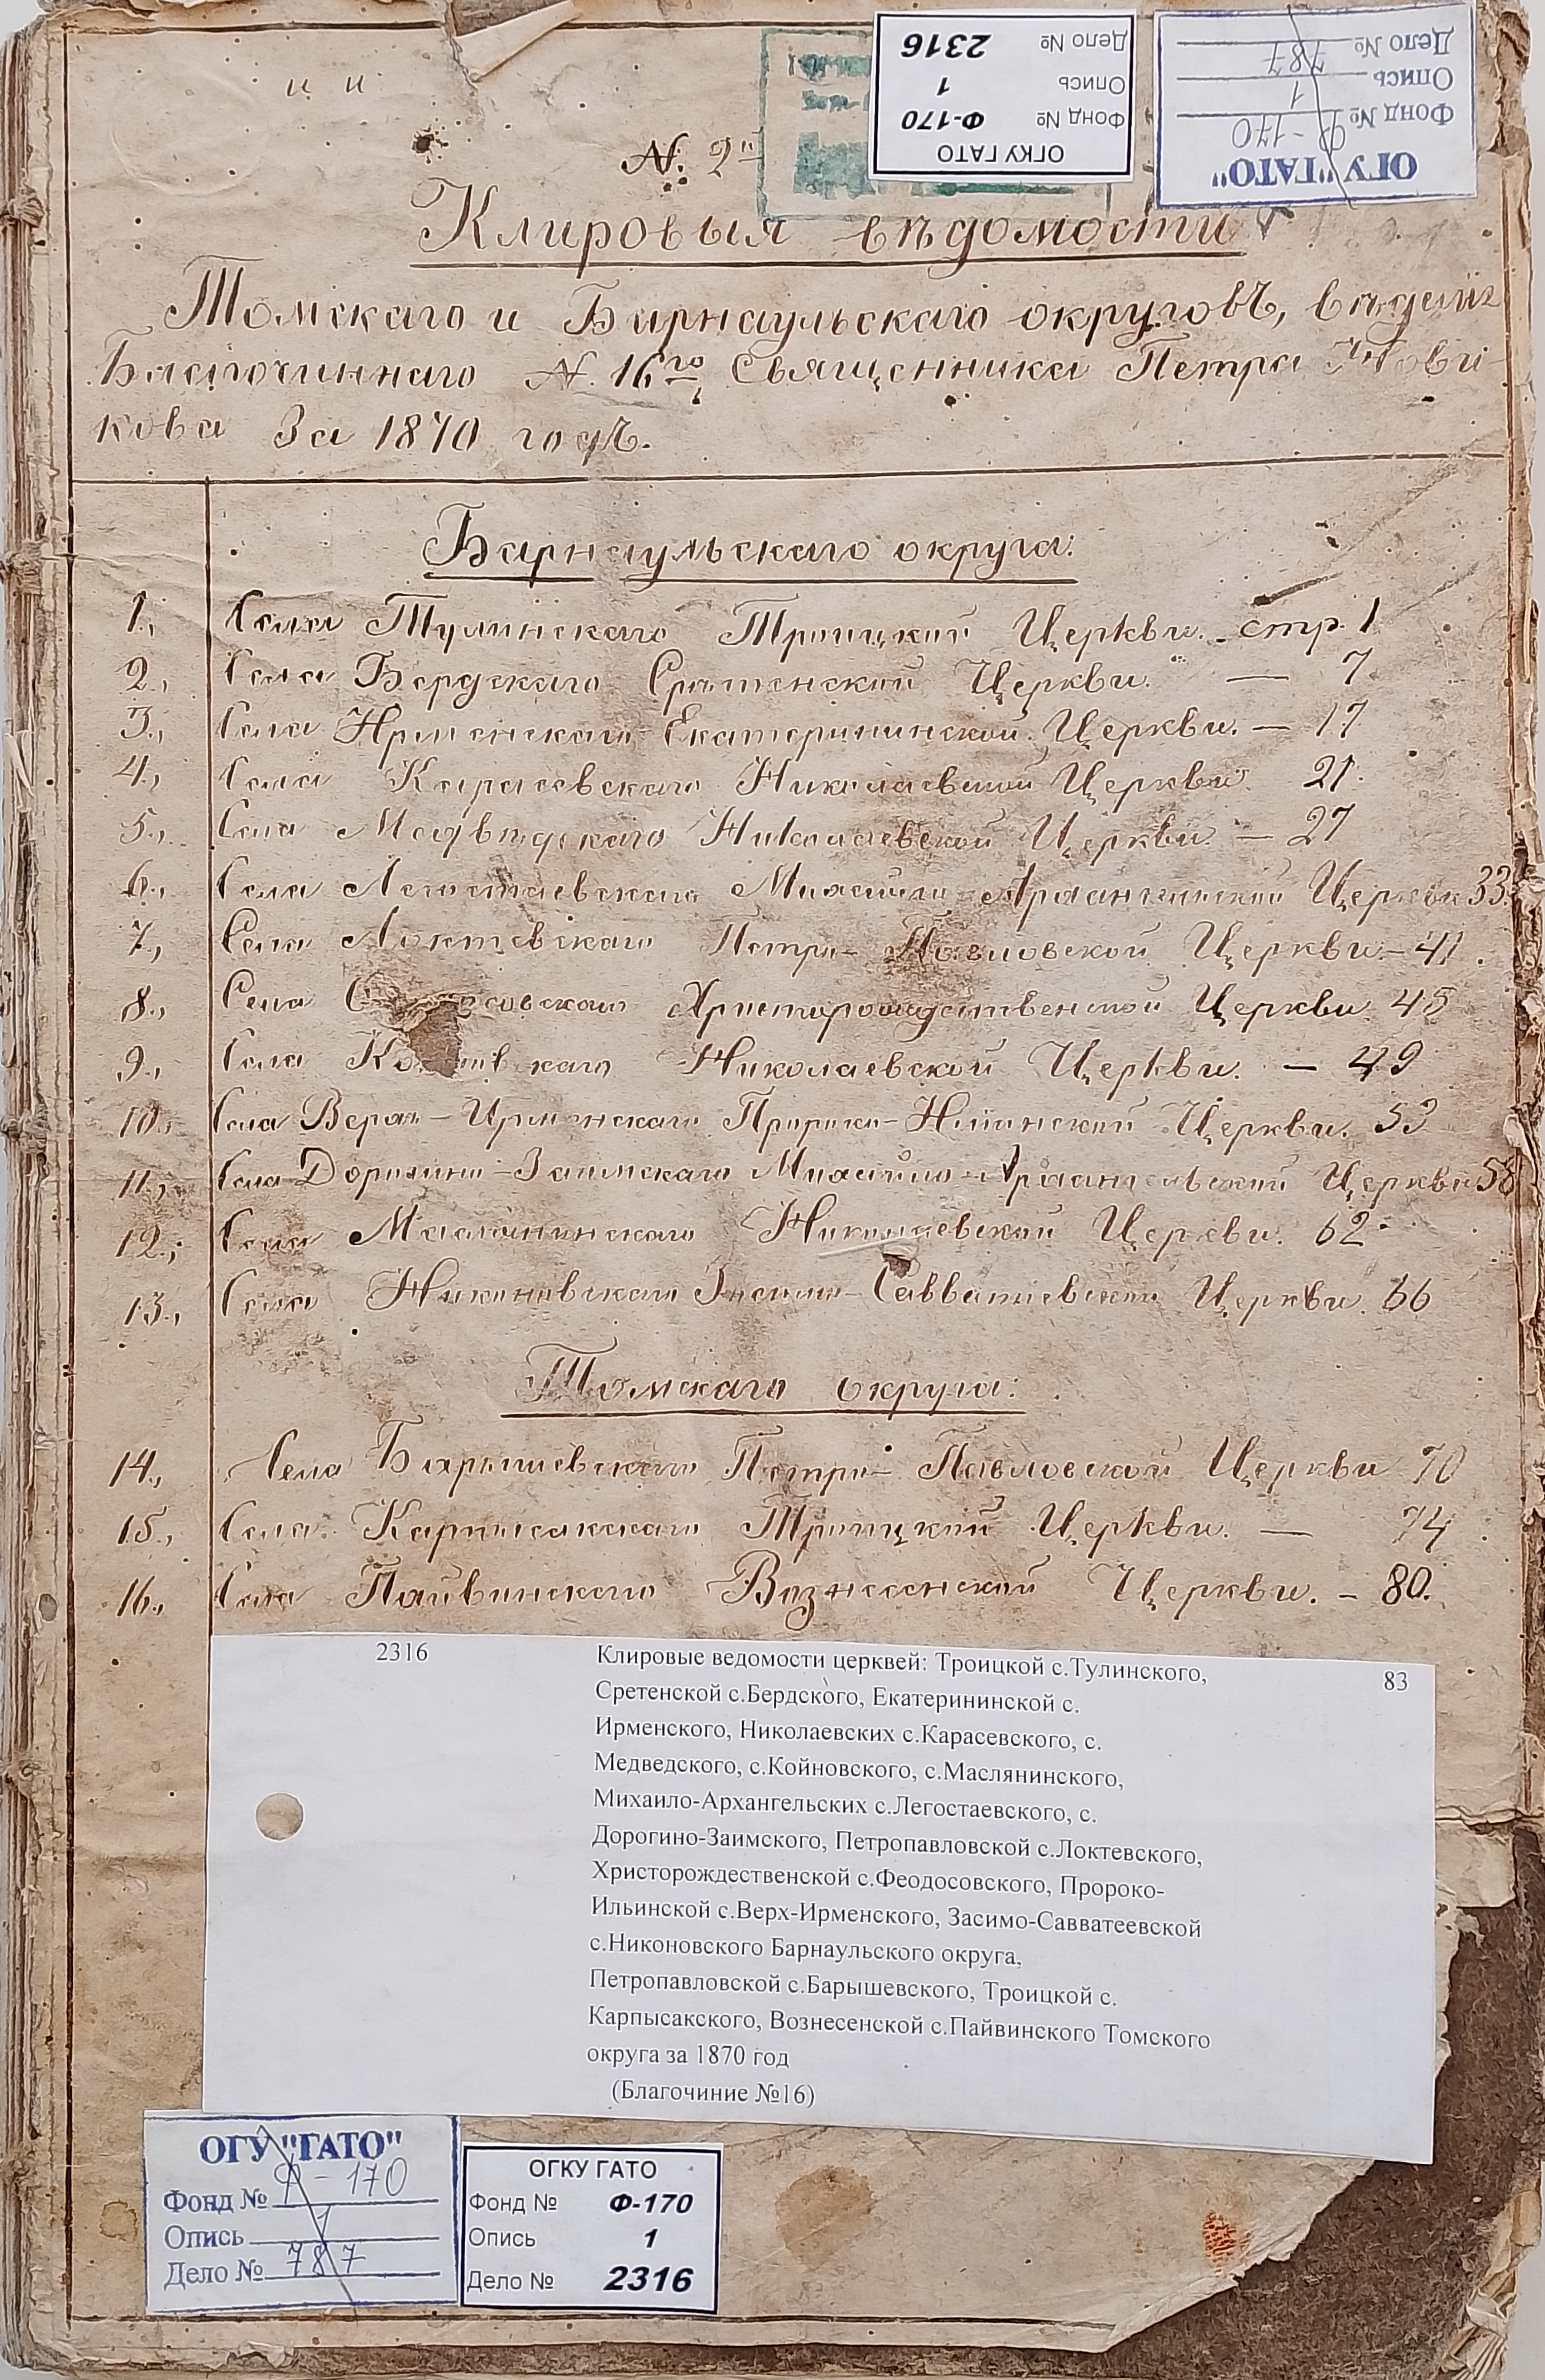 ОГКУ ГАТО
Фонд № Ф-170
Опись 1
Дело № 2316
ОГУ "ГАТО"
Фонд № Ф-170
Опись 1
Дело № 787
№. 2й
Клировыя вѣдомости
Томскаго и Барнаульскаго округовъ,
Благочиннаго №. 16го Священника Петра Нови-
кова За 1870 годъ.
Барнаульскаго округа:
1., Села Тулинскаго Троицкой Церкви. стр. 1
2., Села Бердскаго Срѣтенской Церкви. — 7
3., Села Ирменскаго Екатерининской Церкви. — 17
4., Села Карасевскаго Николаевской Церкви. 21.
5., Села Медвѣдскаго Николаевской Церкви. — 27
6., Села Легостаевскаго Михаило-Архангельской Церкви 33.
7., Села Локтевскаго Петро-Павловской Церкви. — 41.
8., Села Христорождественской Церкви 45
9., Села Николаевской Церкви. — 49
10., Села Верхъ-Ирменскаго Пророко-Ильинской Церкви. 53
11., Села Дорогино-Заимскаго Михаило-Архангельской Церкви 58
12., Села Маслянинскаго Николаевской Церкви. 62.
13., Села Никоновскаго Зосимо-Савватиевской Церкви. 66
Томскаго округа:
14., Села Барышевскаго Петро-Павловской Церкви 70
15., Села Карпысакскаго Троицкой Церкви. — 74
16., Села Пайвинскаго Вознесенской Церкви. — 80.
2316 Клировые ведомости церквей: Троицкой с.Тулинского, 83
Сретенской с.Бердского, Екатерининской с.
Ирменского, Николаевских с.Карасевского, с.
Медведского, с.Койновского, с.Маслянинского,
Михаило-Архангельских с.Легостаевского, с.
Дорогино-Заимского, Петропавловской с.Локтевского,
Христорождественской с.Феодосовского, Пророко-
Ильинской с.Верх-Ирменского, Засимо-Савватеевской
с.Никоновского Барнаульского округа,
Петропавловской с.Барышевского, Троицкой с.
Карпысакского, Вознесенской с.Пайвинского Томского
округа за 1870 год
(Благочиние №16)
ОГУ "ГАТО"
Фонд № Ф-170
Опись 1
Дело № 787
ОГКУ ГАТО
Фонд № Ф-170
Опись 1
Дело № 2316